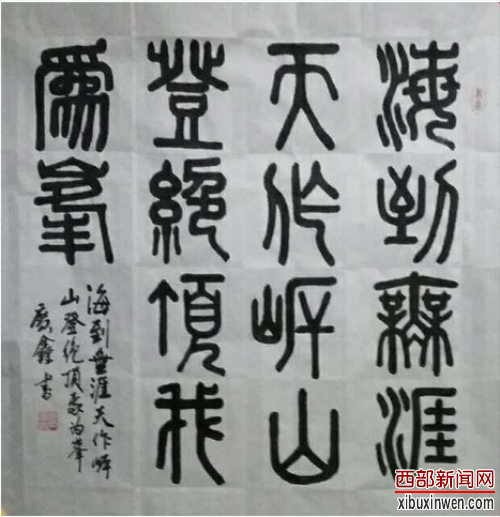 海到無涯
天作岸山
登絶頂我
爲峯
海到無涯天作岸
山登絶頂我为峯
鑫书
西部新闻网
xibuxinwen.com